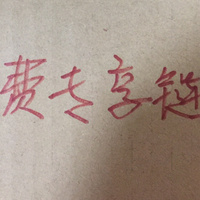 费专享链